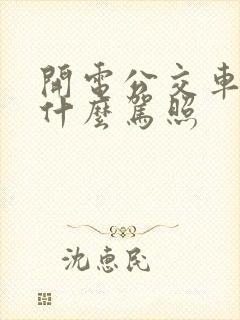 開電公交車
什麼駕照
沈惠民